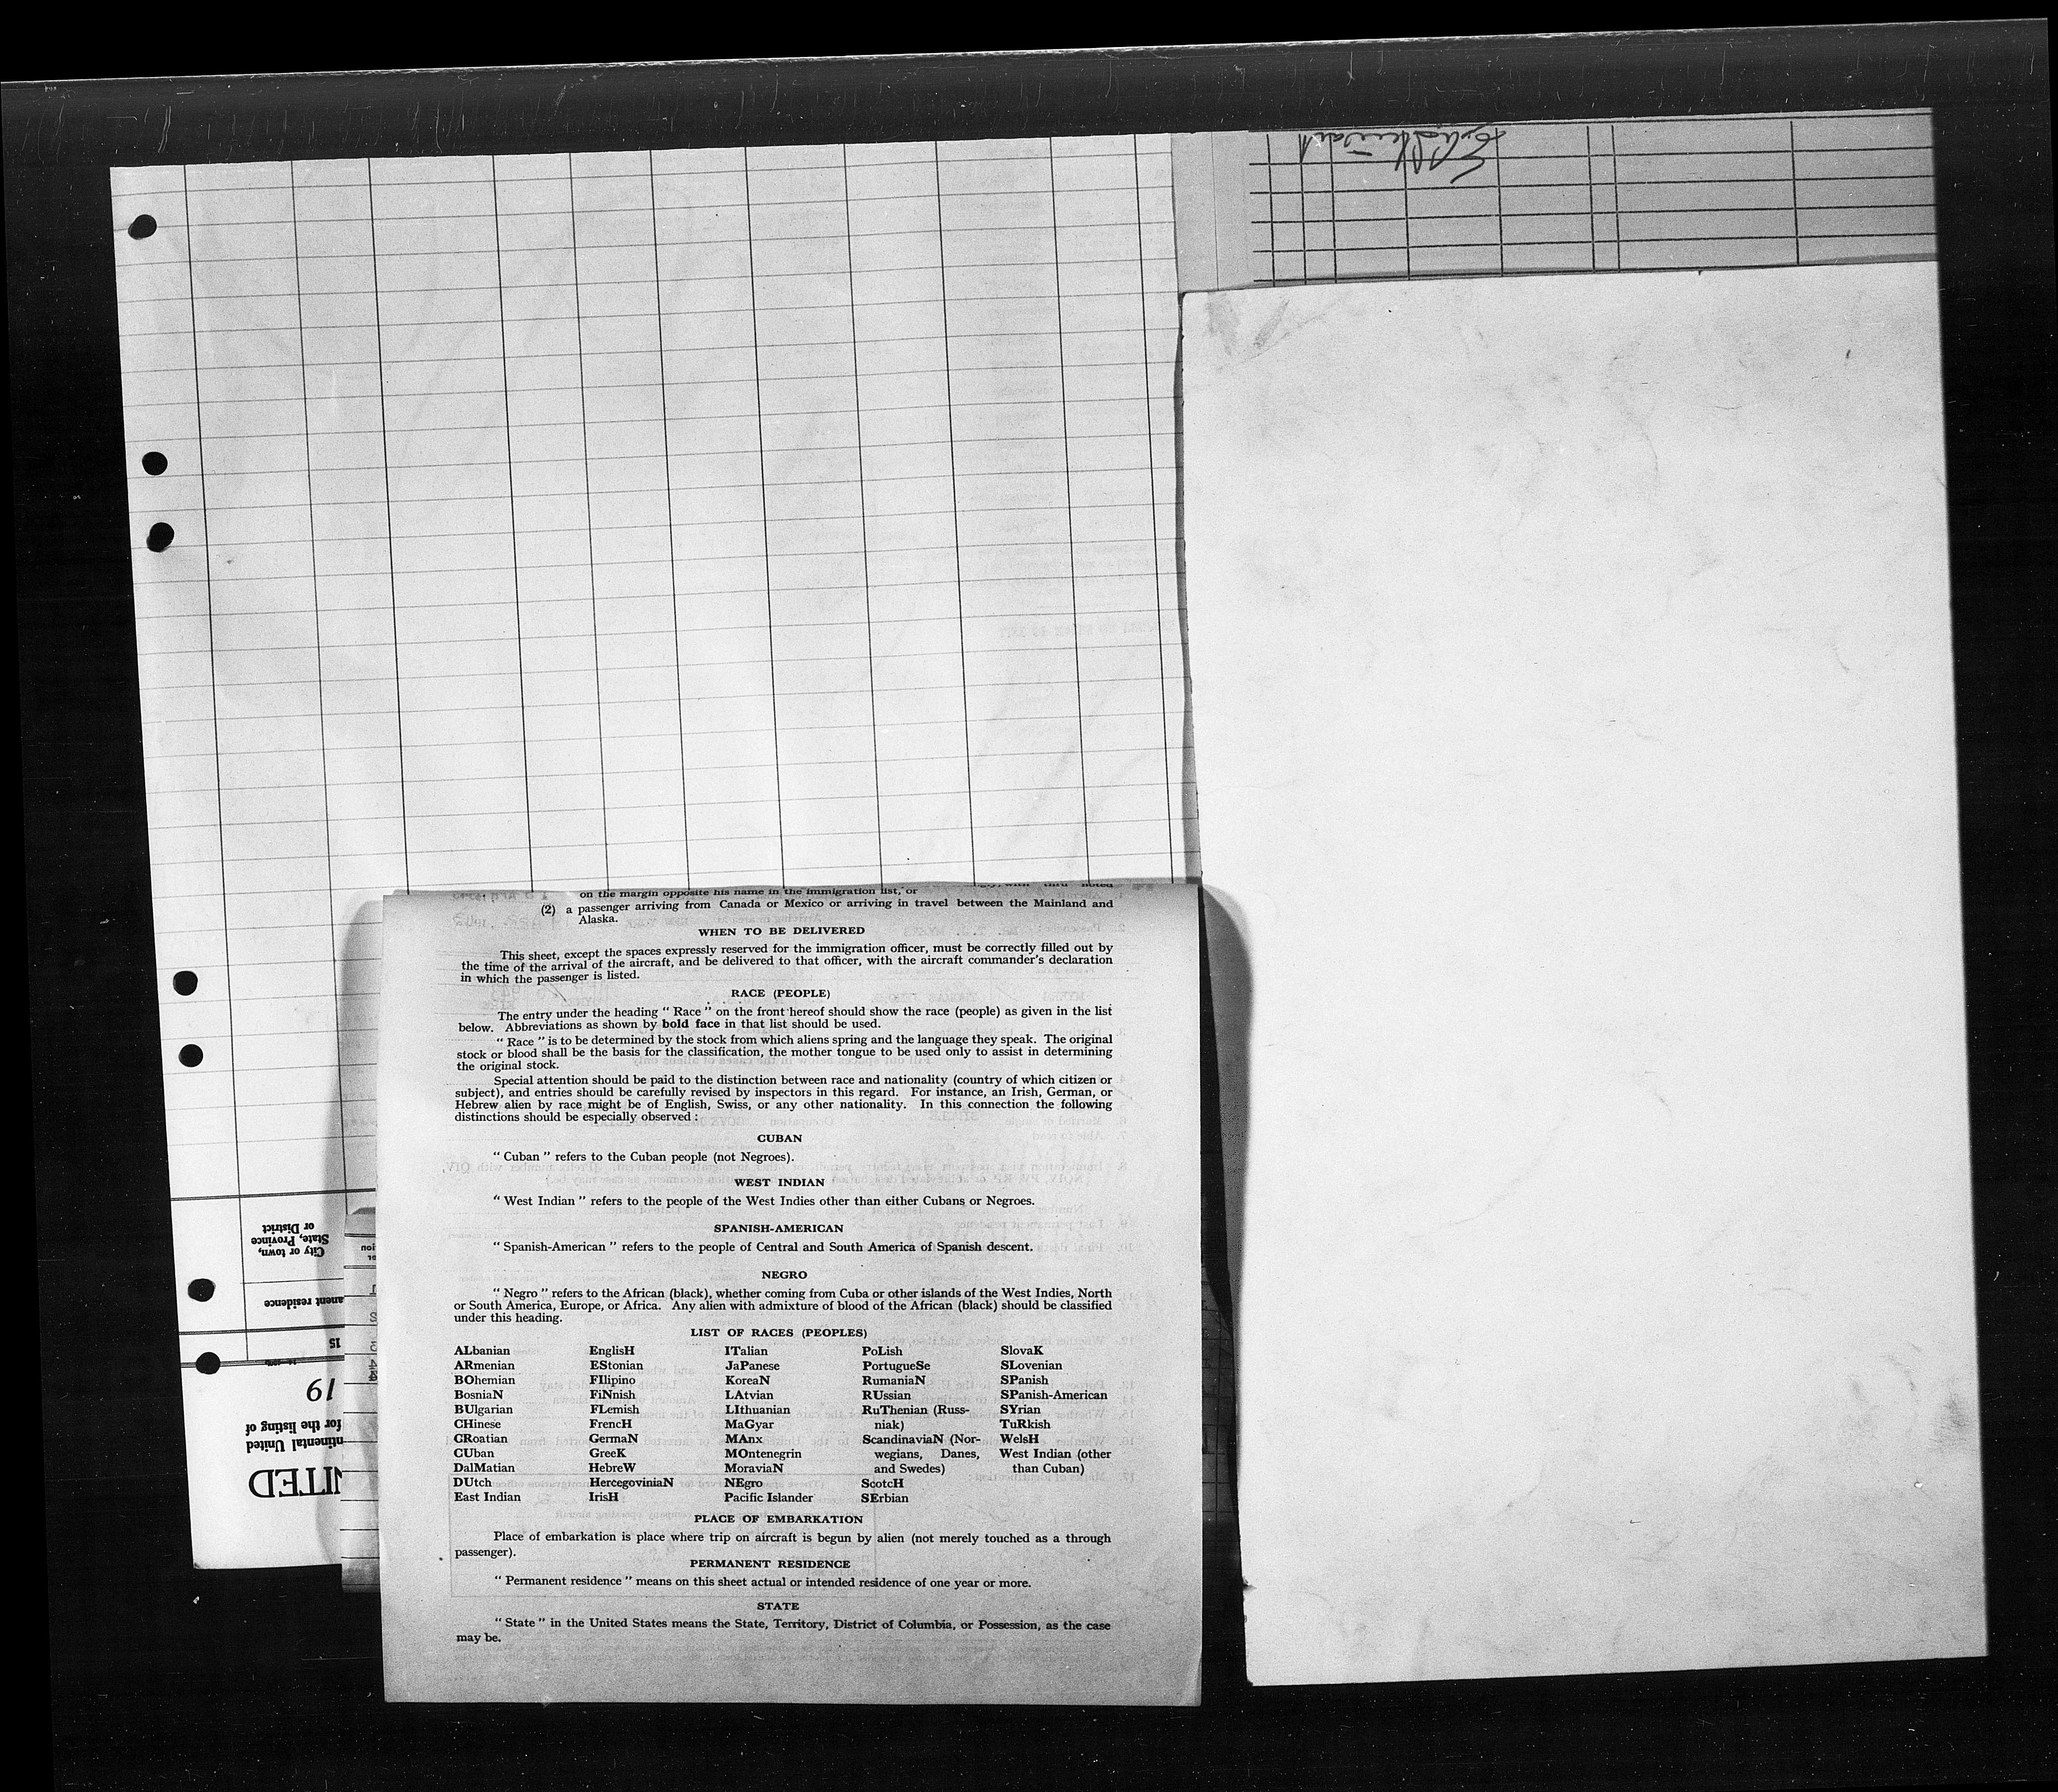 on the margin opposite his name in the immigration list, or
(2) a passenger arriving from Canada or Mexico or arriving in travel between the Mainland and
Alaska.
WHEN TO BE DELIVERED
This sheet, except the spaces expressly reserved for the immigration officer, must be correctly filled out by
the time of the arrival of the aircraft, and be delivered to that officer, with the aircraft commander's declaration
in which the passenger is listed.
RACE (PEOPLE)
The entry under the heading "Race" on the front hereof should show the race (people) as given in the list
below. Abbreviations as shown by bold face in that list should be used.
"Race" is to be determined by the stock from which aliens spring and the language they speak. The original
stock or blood shall be the basis for the classification, the mother tongue to be used only to assist in determining
the original stock.
Special attention should be paid to the distinction between race and nationality (country of which citizen or
subject), and entries should be carefully revised by inspectors in this regard. For instance, an Irish, German, or
Hebrew alien by race might be of English, Swiss, or any other nationality. In this connection the following
distinctions should be especially observed:
CUBAN
"Cuban" refers to the Cuban people (not Negroes).
WEST INDIAN
"West Indian" refers to the people of the West Indies other than either Cubans or Negroes.
SPANISH-AMERICAN
"Spanish-American" refers to the people of Central and South America of Spanish descent.
NEGRO
"Negro" refers to the African (black), whether coming from Cuba or other islands of the West Indies, North
or South America, Europe, or Africa. Any alien with admixture of blood of the African (black) should be classified
under this heading.
LIST OF RACES (PEOPLES)
ALbanian
ARmenian
BOhemian
BosniaN
BUlgarian
CHinese
CRoatian
CUban
DalMatian
DUtch
East Indian
EnglisH
EStonian
FIlipino
FiNnish
FLemish
FrencH
GermaN
GreeK
HebreW
HercegoviniaN
IrisH
ITalian
JaPanese
KoreaN
LAtvian
LIthuanian
MaGyar
MAnx
MOntenegrin
MoraviaN
NEgro
Pacific Islander
PoLish
PortugueSe
RumaniaN
RUssian
RuThenian (Russ-
niak)
ScandinaviaN (Nor-
wegians, Danes,
and Swedes)
ScotcH
SErbian
SlovaK
SLovenian
SPanish
SPanish-American
SYrian
TuRkish
WelsH
West Indian (other
than Cuban)
PLACE OF EMBARKATION
Place of embarkation is place where trip on aircraft is begun by alien (not merely touched as a through
passenger).
PERMANENT RESIDENCE
"Permanent residence" means on this sheet actual or intended residence of one year or more.
STATE
"State" in the United States means the State, Territory, District of Columbia, or Possession, as the case
may be.
NITED
ntinental United
for the listing of
19
15
anent residence
City or town,
State, Province
or District